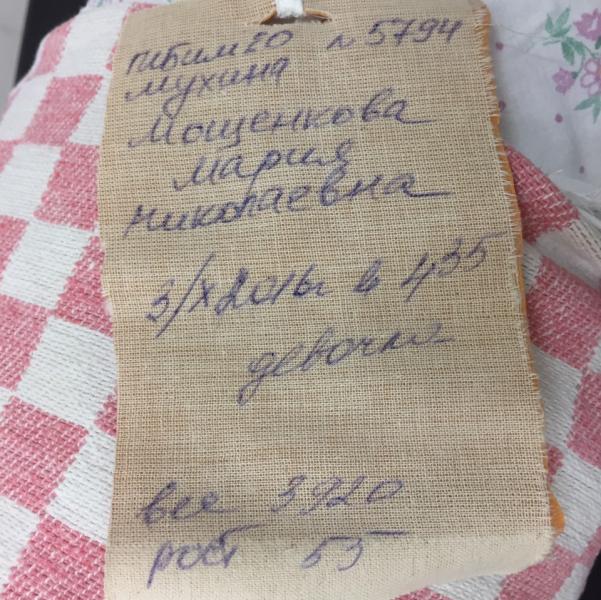 № 5794
Мухина
Мощенкова
Мария
Николаевна
в 4 35
девочка
вес 3920
рост 55